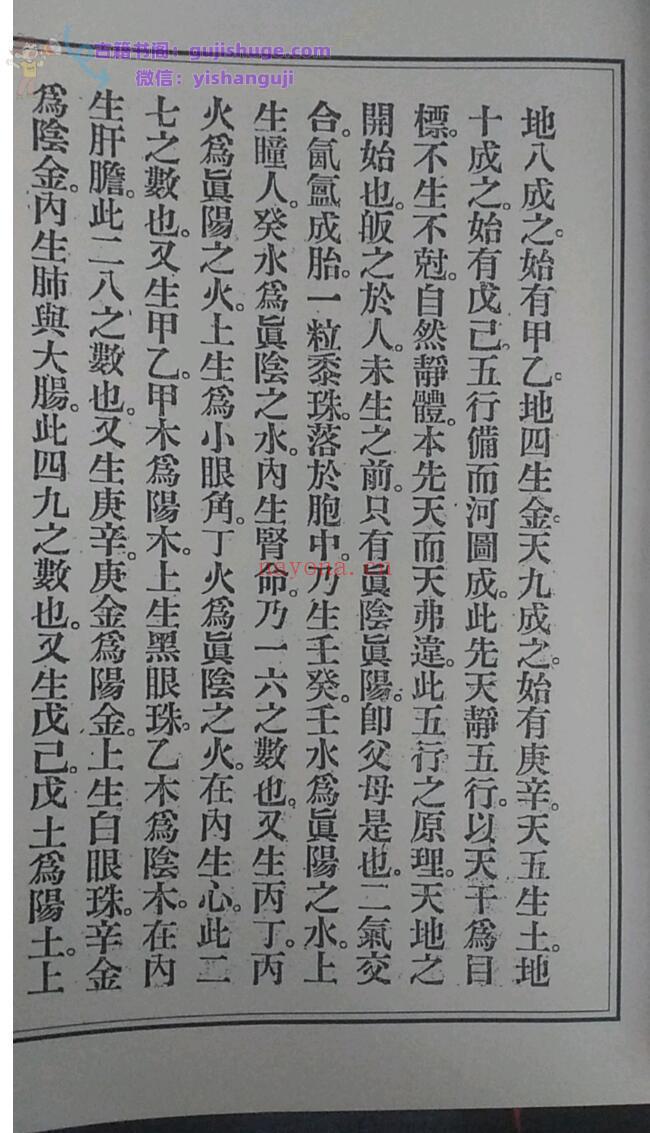 古籍书阁：gujishuge.com
微信：yishanguji
地八成之。始有甲乙。地四生金。天九成之。始有庚辛。天五生土。地
十成之。始有戊己。五行備而河圖成。此先天靜五行。以天干爲目
標。不生不尅。自然靜體。本先天而天弗違。此五行之原理。天地之
開始也。皈之於人。未生之前。只有眞陰眞陽。卽父母是也。二氣交
合。氤氳成胎。一粒黍珠。落於胞中。乃生壬癸。壬水爲眞陽之水。上
生瞳人。癸水爲眞陰之水。內生腎命。乃一六之數也。又生丙丁。丙
火爲眞陽之火。上生爲小眼角。丁火爲眞陰之火。在內生心。此二
七之數也。又生甲乙。甲木爲陽木。上生黑眼珠。乙木爲陰木。在內
生肝膽。此二八之數也。又生庚辛。庚金爲陽金。上生白眼珠。辛金
爲陰金。內生肺與大腸。此四九之數也。又生戊己。戊土爲陽土。上
nayona.cn